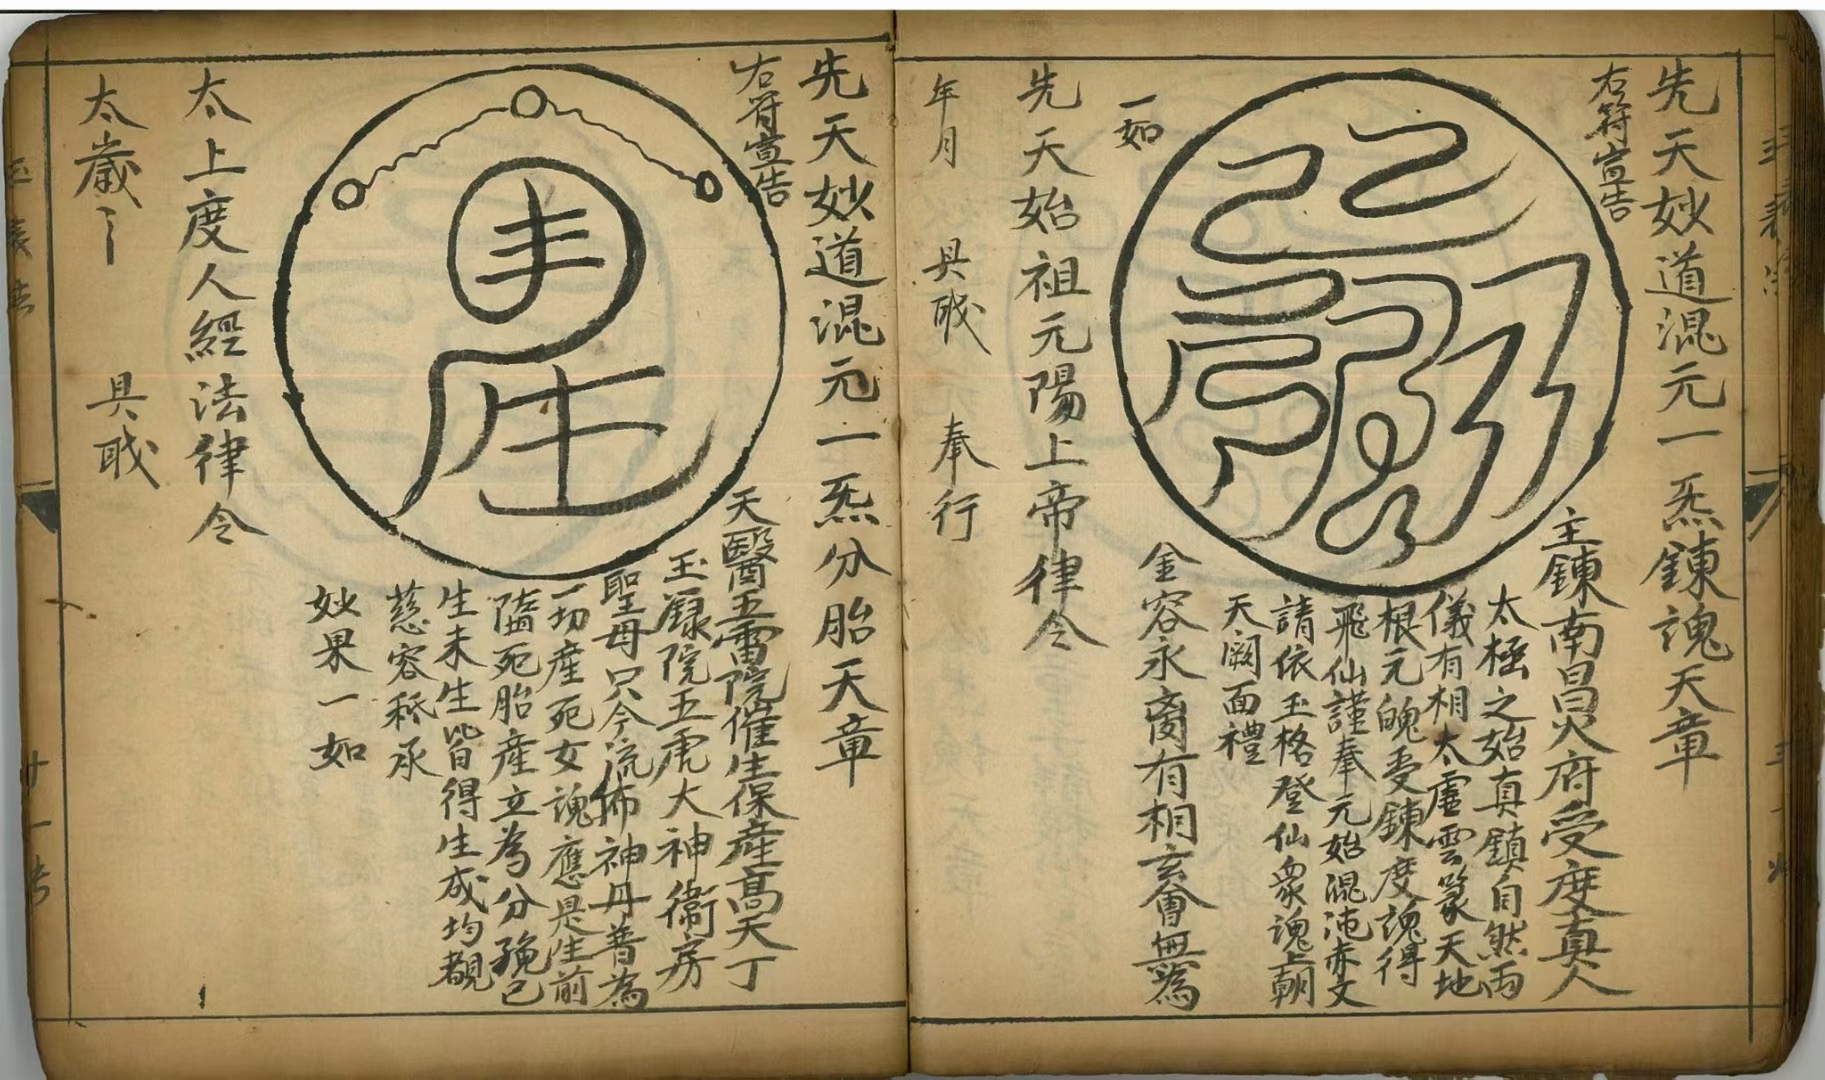 先天妙道混元一炁鍊魂天章
右符宣告
主鍊南昌火府受度真人
太極之始真鎮自然兩
儀有相太虛雲篆天地
根元魄受鍊度魂得
飛仙謹奉元始混沌赤文
請依玉格登仙眾魂上朝
天闕面禮
金容永裔有相玄會無為
一如
先天始祖元陽上帝律令
年月 具職 奉行
先天妙道混元一炁分胎天章
右符宣告
天醫五雷院催生保產高天丁
玉籙院五虎大神衛房
聖母只今流佈神丹普為
一切產死女魂應是生前
墮死胎產立為分娩已
生未生皆得生成均覩
慈容秪承
妙果一如
太上度人經法律令
太歲 具職
廿一